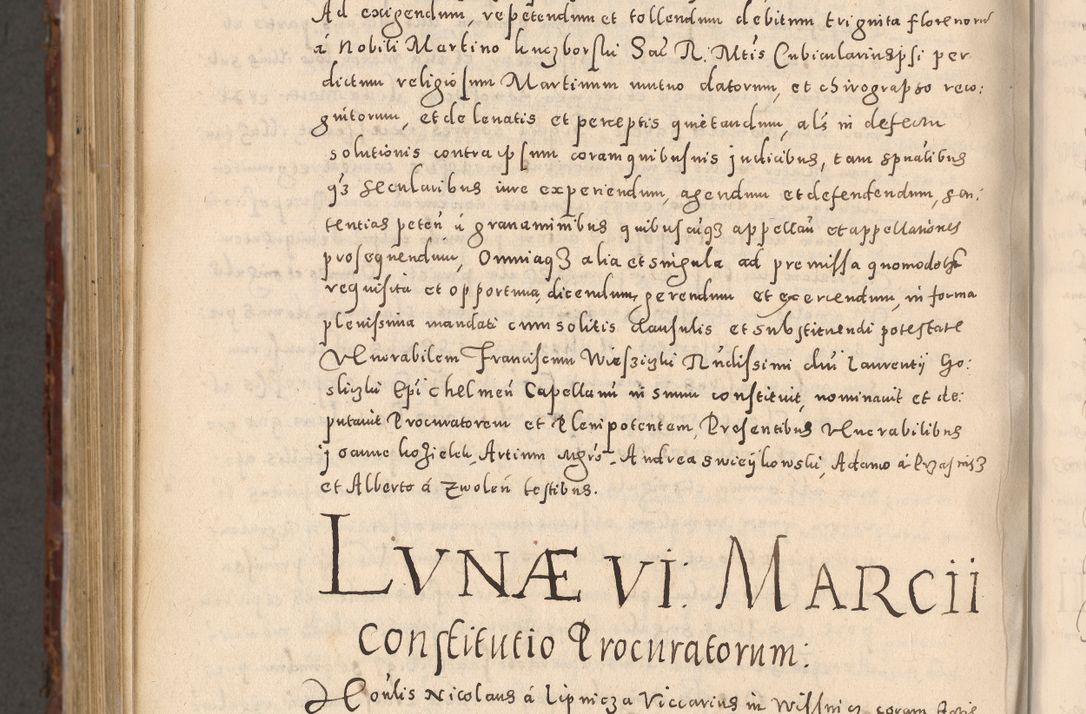 Ad exigendum, repetendum et tollendum debitum triginta florenorum
á Nobili Martino kuczborski Sac R. Mtis Cubiculario ipsi per
dictum religiosum Martinum mutuo datorum, et chirographo reco:
gnitorum, et de levatis et perceptis quietandum, als in defectu
solutionis contra ipsum coram quibusuis judicibus, tam spualibus
qz secularibus iure experiendum, agendum et defendendum, sen:
tentias peteñ á grauaminibus quibuscuqz appellañ et appellationes
prosequendum, Omniaqz alia et singula ad premissa quomodolibet
requisita et opportuna, dicendum, gerendum et exercendum, in forma
plenissima mandati cum solitis clausulis et substituendi potestate
Venerabilem Franciscum Rndissimi dni Laurentij Go:
sliczki Epi Chelmeñ Capellanum suum constituit, nominauit et de:
putauit Procuratorem et Plenipotentem, Presentibus Venerabilibus
Joanne koziełek, Artium mgro, Andrea swieykowski, Adamo á
et Alberto á Zwoleñ testibus.
LVNÆ VI. MARCII
Constitutio Procuratorum:
Honlis Nicolaus á Lipnicza Viccarius in Wissnicz coram Actis